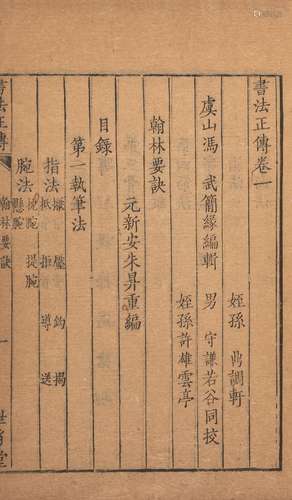 書法正傳卷一
虞山馮 武簡緣編輯
姪孫 鼎調軒
男 守謙若谷同挍
姪孫許雄雲亭
翰林要訣
元新安朱昇重編
目錄
第一執筆法
指法 擫 壓 鈎 揭
抵 拒 導 送
腕法 枕腕 提腕
懸腕
書法正傳
翰林要訣
一
世豸堂